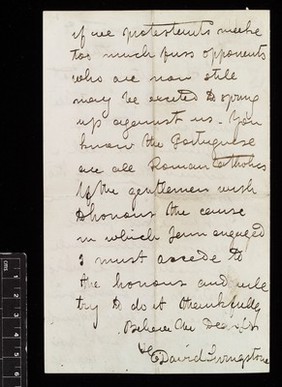 if we protestants make
too much fuss opponents
who are now still
may be excited to spring
up against us. You
know the Portuguese
are all Roman Catholics
If the gentlemen wish
to honour the cause
in which I am engaged
I must accede to
the honour and will
try to do it thankfully
Believe Me Dear Sir
David Livingstone
CMS
1
2
3
4
5
6